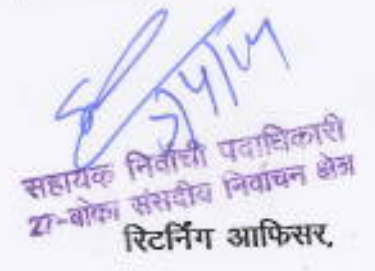 सहायक निर्वाची पदाधिकारी
27-बांका संसदीय निर्वाचन क्षेत्र
रिटर्निंग आफिसर,